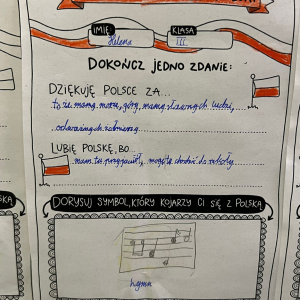 IMIĘ
Helena
KLASA
III
DOKOŃCZ JEDNO ZDANIE:
DZIĘKUJĘ POLSCE ZA...
to że mamy morze, góry, mamy sławnych ludzi,
odważnych żołnierzy
LUBIĘ POLSKĘ, BO...
mam tu przyjaciół, mogę tu chodzić do szkoły.
DORYSUJ SYMBOL, KTÓRY KOJARZY CI SIĘ Z POLSKĄ
hymn